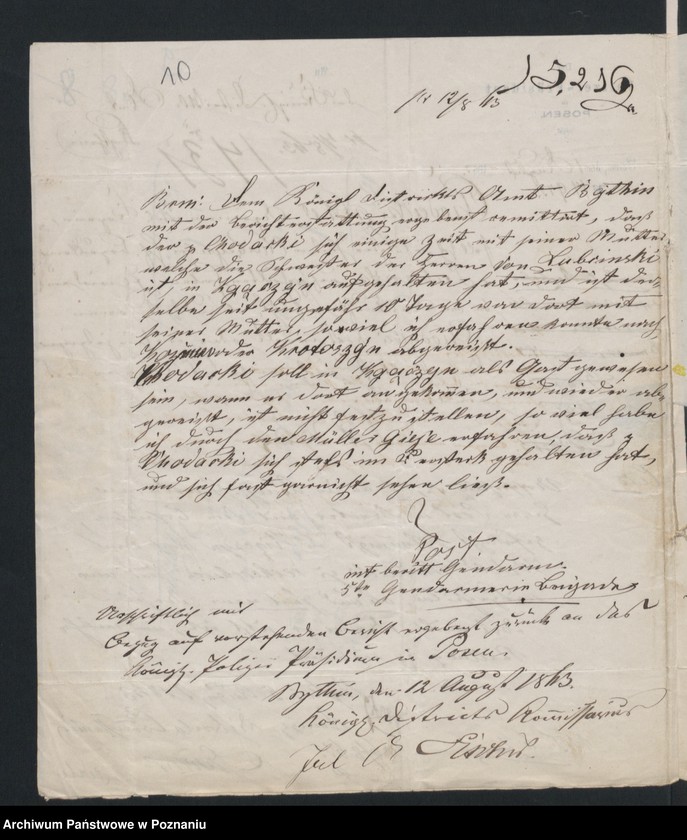 10
15,216
pr 12/8 63
POSEN
Brm: Dem Königl Districkts Amt Bythin
mit der Berichterstattung ergebenst remittirt, daß
der p Chodacki sich einige Zeit mit seiner Mutter
welche die Schwester des Herren von Lubinski
ist in Zgaczyn aufgehalten hat, und ist der-
selbe seit ungefähr 10 Tage von dort mit
seiner Mutter, soviel ich erfahren konnte nach
Kozmin oder Krotoszyn abgereißt.
Chodacki soll in Zgaczyn als Gast gewesen
sein, wann er dort angekommen, und wieder abe
gereißt, ist nicht festzustellen, so viel habe
ich durch den Müller Giese erfahren, daß p
Chodacki sich stets im Verstek gehalten hat,
und sich fast garnicht sehen ließ.
Post
int beritt Gendarm.
5te Gendarmerie Brigade
Urschriftlich mit
Bezug auf vorstehenden Bericht ergebenst zurück an das
Königl. Polizei Präsidium in Posen.
Bythin, den 12 August 1863.
Königl. Districts Kommissarius
Archiwum Państwowe w Poznaniu